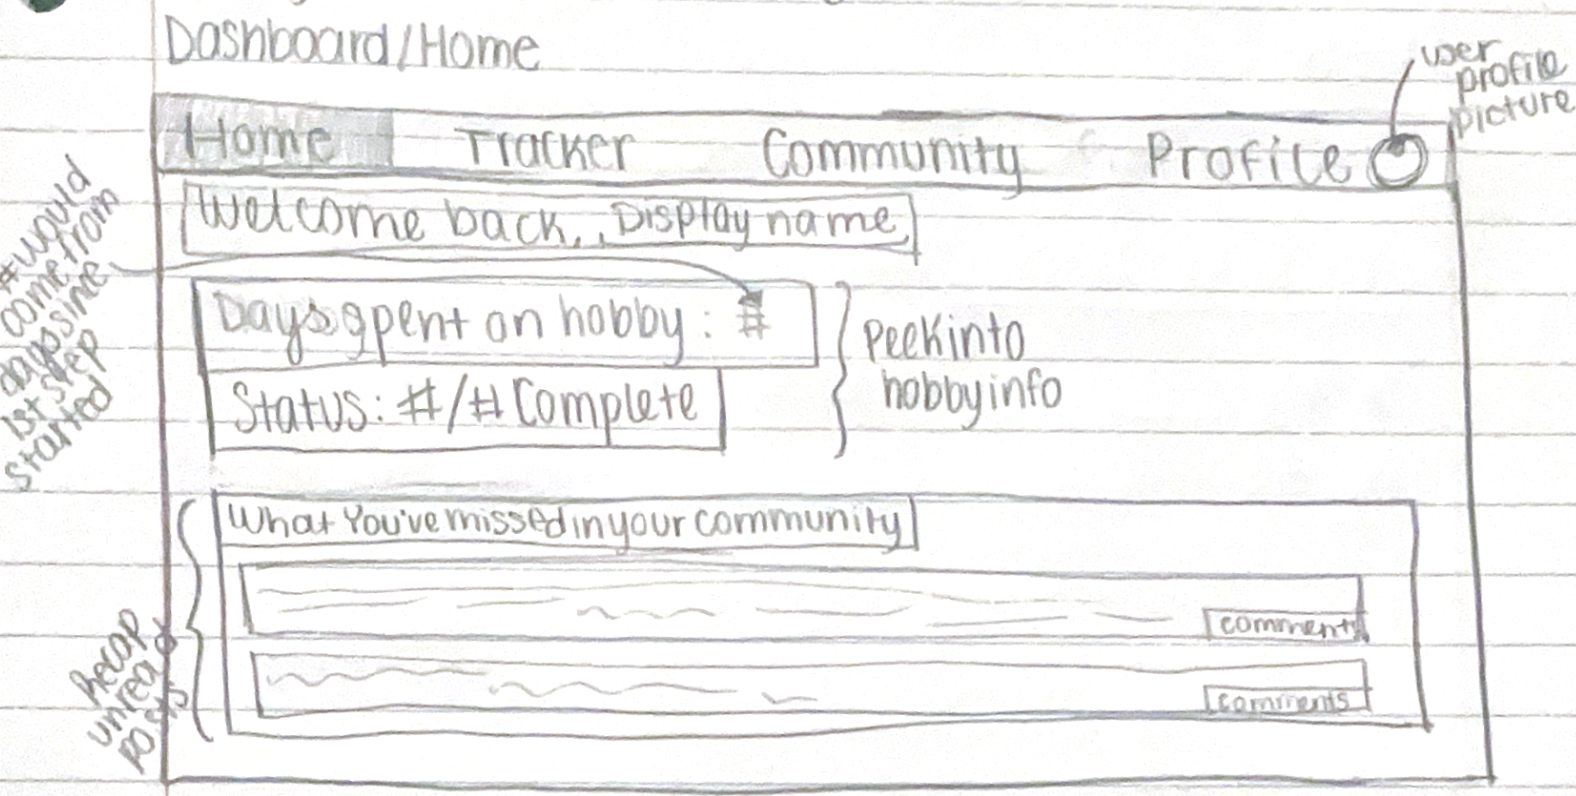 Dashboard/Home
user
profile
picture
Home Tracker Community Profile
Welcome back, Display name
# would
come from
days since
1st step
started
Days spent on hobby: #
Status: #/# Complete
Peek into
hobby info
What You've missed in your community
comments
comments
Recap
unread
posts